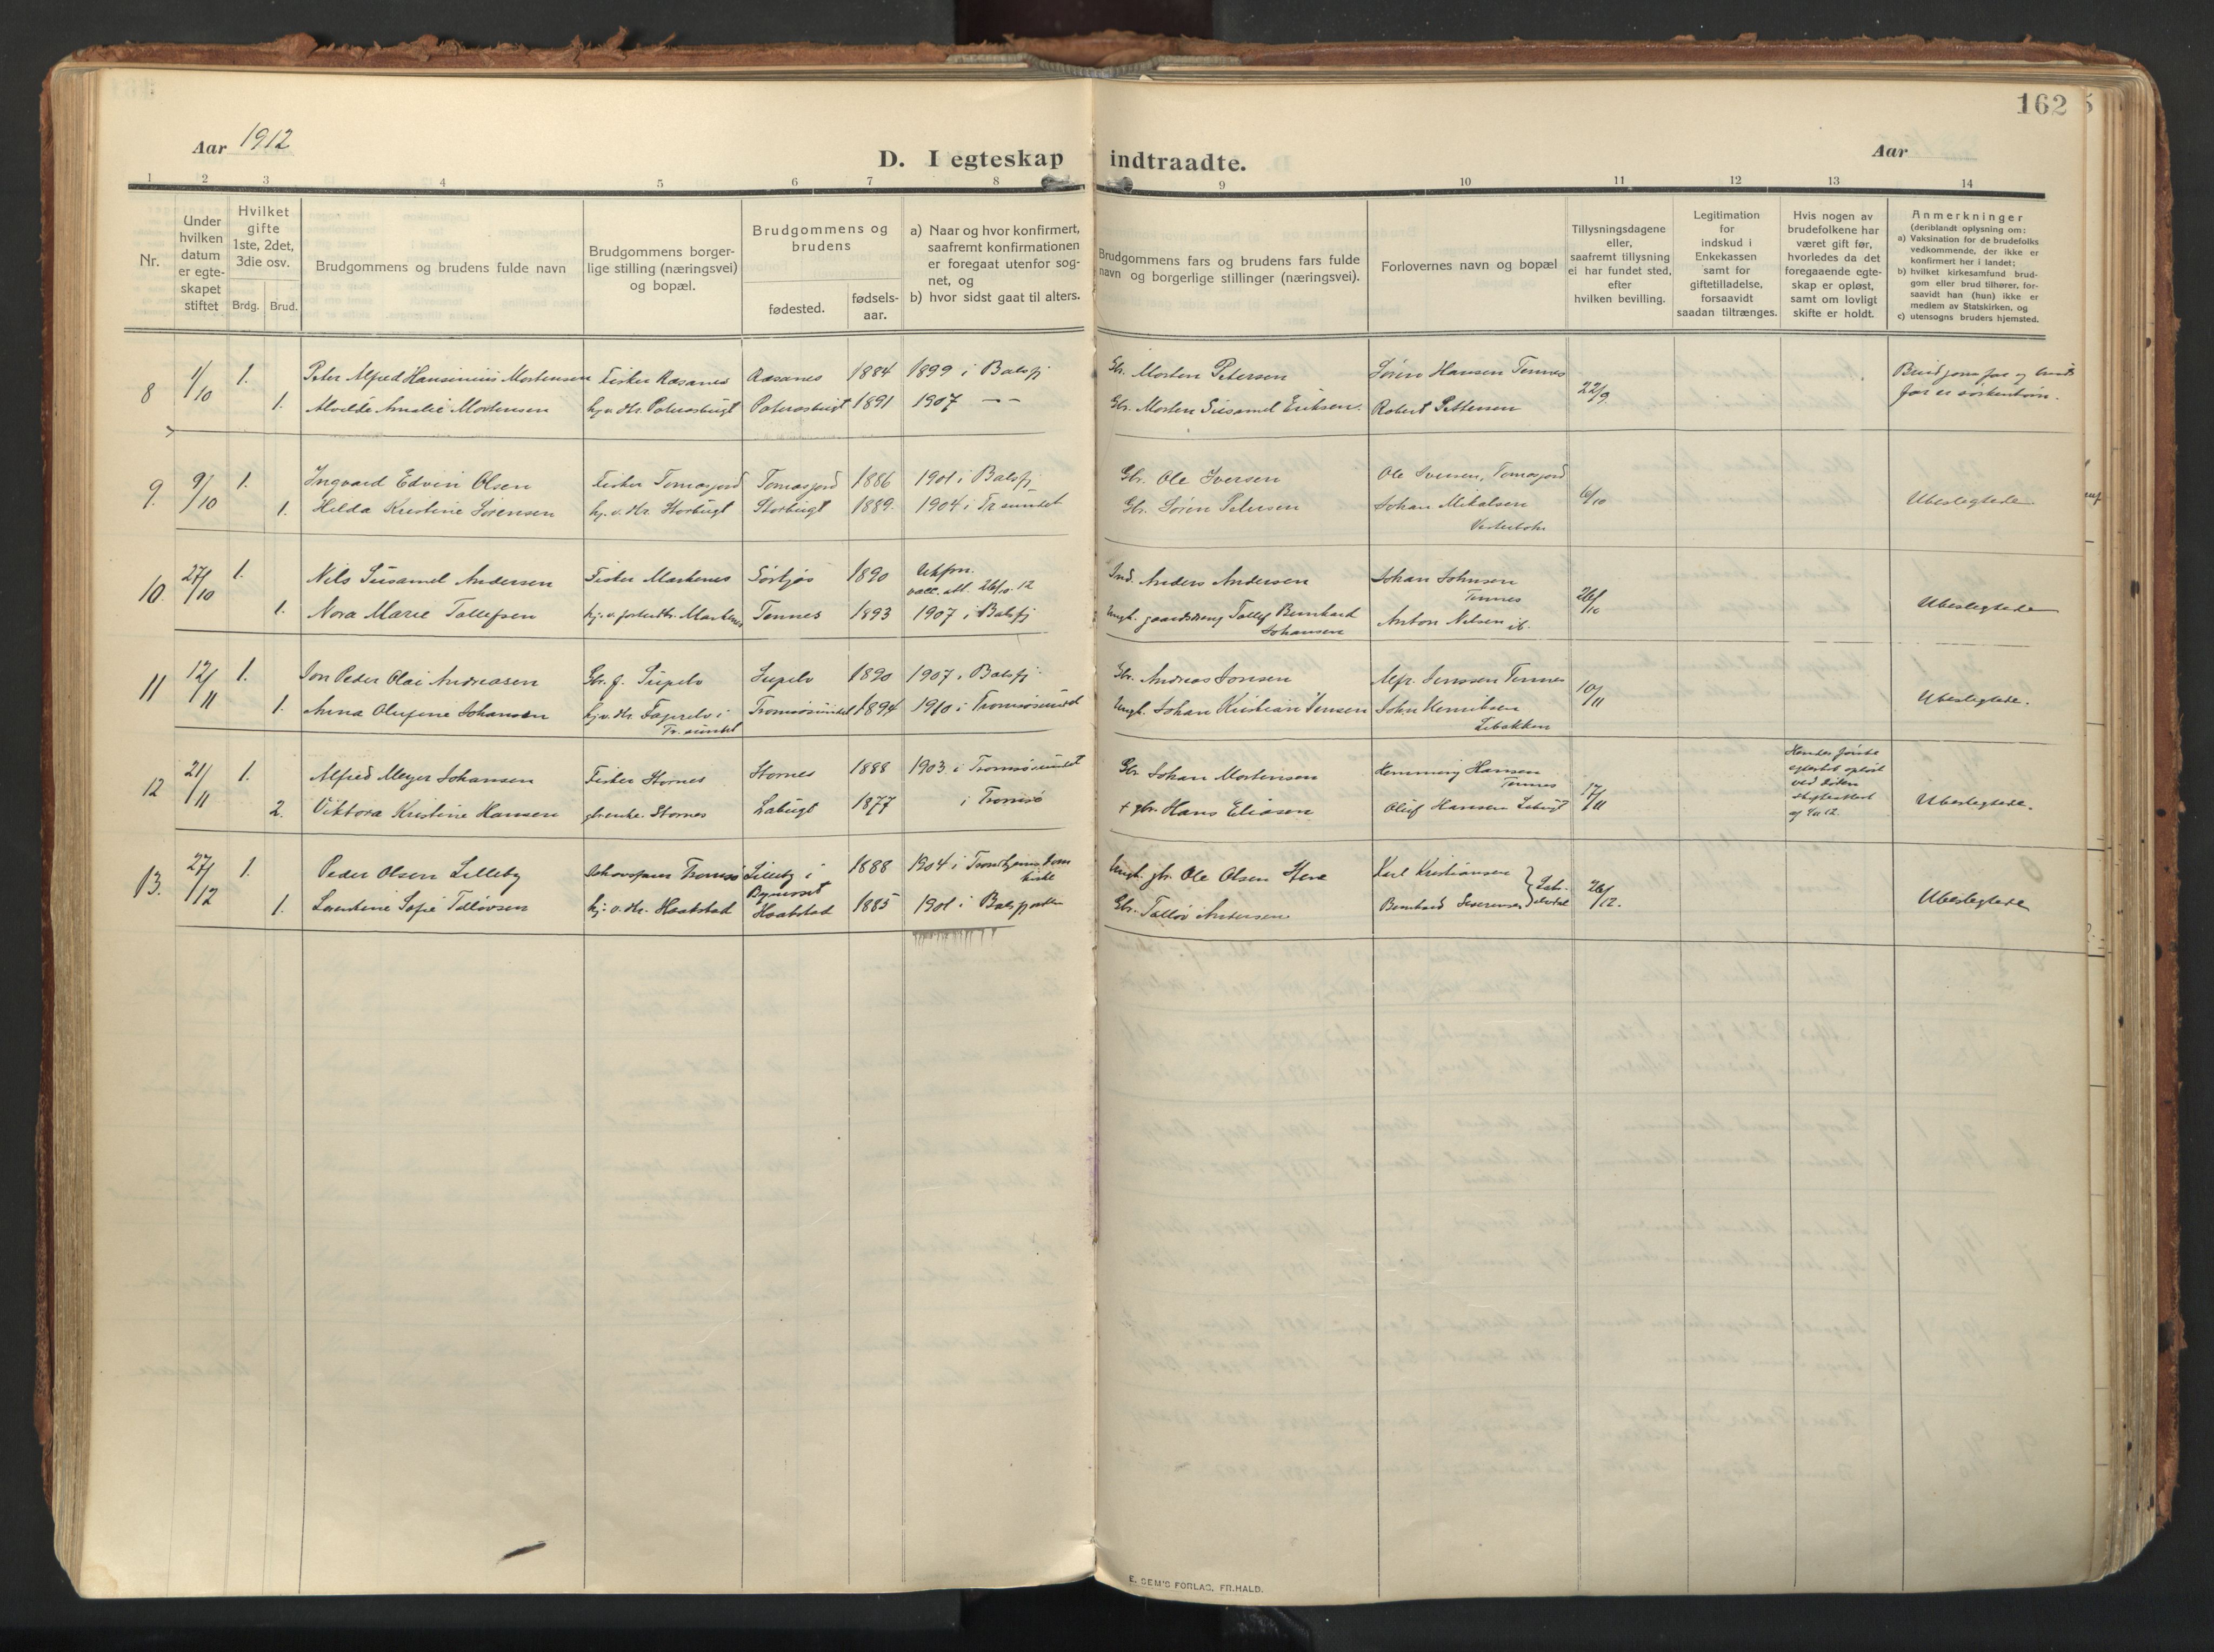 162
Aar 1912
D. I egteskap indtraadte.
Aar
1 2 3 4 5 6 7 8 9 10 11 12 13 14
Nr.
Under hvilken datum er egte-skapet stiftet
Hvilket gifte 1ste, 2det, 3die osv.
Brdg. Brud.
Brudgommens og brudens fulde navn
Brudgommens borger-lige stilling (næringsvei) og bopæl.
Brudgommens og brudens
fødested.
fødsels-aar.
a) Naar og hvor konfirmert, saafremt konfirmationen er foregaat utenfor sog-net, og
b) hvor sidst gaat til alters.
Brudgommens fars og brudens fars fulde navn og borgerlige stillinger (næringsvei).
Forlovernes navn og bopæl
Tillysningsdagene eller, saafremt tillysning ei har fundet sted, efter hvilken bevilling.
Legitimation for indskud i Enkekassen samt for giftetilladelse, forsaavidt saadan tiltrænges.
Hvis nogen av brudefolkene har været gift før, hvorledes da det foregaaende egte-skap er opløst, samt om lovligt skifte er holdt.
Anmerkninger
(deriblandt oplysning om:
a) Vaksination for de brudefolks vedkommende, der ikke er konfirmert her i landet;
b) hvilket kirkesamfund brud-gom eller brud tilhører, for-saavidt han (hun) ikke er medlem av Statskirken, og
c) utensogns bruders hjemsted.
8 1/10 1. Peter Alfred Hansinius Mortensen Fisker Røsanes Røsanes 1884 1899 i Balsfj Gbr. Morten Petersen Sören Hansen Tennes 22/9
1. Alvilde Amalie Mortensen hj. v. dtr. 1891 1907 — — Gbr. Morten Eriksen. Robert Pettersen
9. 9/10 1. Ingvard Edvin Olsen Fisker Tomasjord Tomasjord 1886 1901 i Balsfj Gbr. Ole Iversen Ole Iversen, Tomasjord 6/10
1. Hilda Kristine Sörensen hj. v. dtr. Storbugt Storbugt 1889. 1904 i Tr sundet Gbr. Sören Petersen Johan Mikalsen Ubeslegtede
10. 27/10 1. Nils Andersen Fisker Markenes 1890 Ukfm. vacc. att. 26/10. 12 Ind. Anders Andersen Johan Johnsen Tennes 26/10
1. Nora Marie Tollefsen Tennes 1893 1907 i Balsfj Ungk. gaardsdreng Tollef Bernhard Johansen Anton Nilsen ib. Ubeslegtede
11 12/11 1. Jon Peder Olai Andreasen 1890 1907 i Balsfj. Gbr. Andreas Jonsen Tennes 10/11
1. Anna Olufine Johansen hj. v. dtr. Tr. sundet Tromsøsundet 1894 1910 i Tromsøsund Ungk. Johan Kristian Jensen John Henriksen Ubeslegtede.
12 21/11 1. Alfred Meyer Johansen Fisker Stornes Stornes 1888 1903 i Tromsøsundet Gbr Johan Mortensen Hemming Hansen Tennes 17/11
2. Viktora Kristine Hansen Stornes 1877 i Tromsø † gbr. Hans Eliasen Oluf Hansen Ubeslegtede.
13. 27/12 1. Peder Olsen Lilleby Tromsø Lilleby i Bynesset 1888 1904 i Ungk. gbr. Ole Olsen Karl Kristiansen 26/12.
1. Lorentine Sofie Tolløvsen hj. v. dtr. Haakstad Haakstad 1885 1901 i Gbr. Tolløv Andersen Bernhard Ubeslegtede
E. SEM'S FORLAG, FR.HALD.